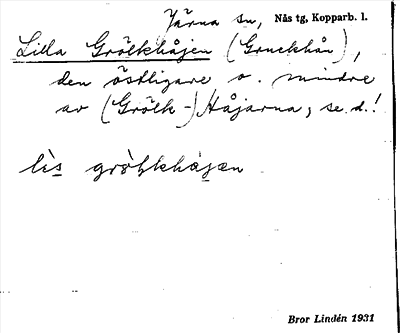 Järna sn, Nås tg, Kopparb. l.
Lilla Grölkhåjen (Gruckhån),
den östligare o. mindre
av (Grölk-)Håjarna, se d.!
Bror Lindén 1931